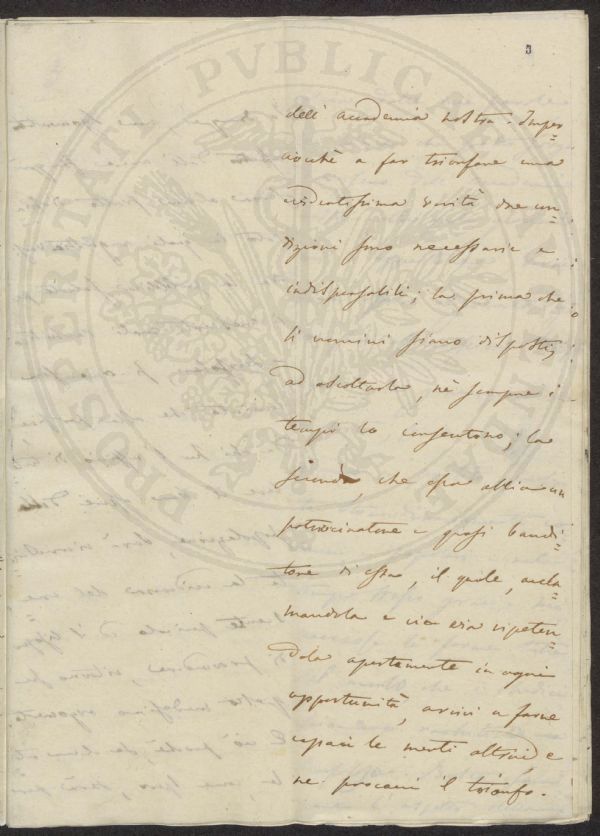 3
dell' accademia nostra. Imper=
ciochè a far trionfare una
verità due con=
dizioni sono necessarie e
indispensabili; la prima che
li uomini siano disposti
ad ascoltarla, nè sempre i
tempi lo consentono; la
seconda, che essa abbia un
patrocinatore e quasi bandi=
tore di essa, il quale, accla=
mandola e via via ripeten=
dola apertamente in ogni
opportunità, arrivi a farne
capaci le menti altrui, e
ne procacci il trionfo.
PROSPERITATI PVBLICAE AVGENDAE